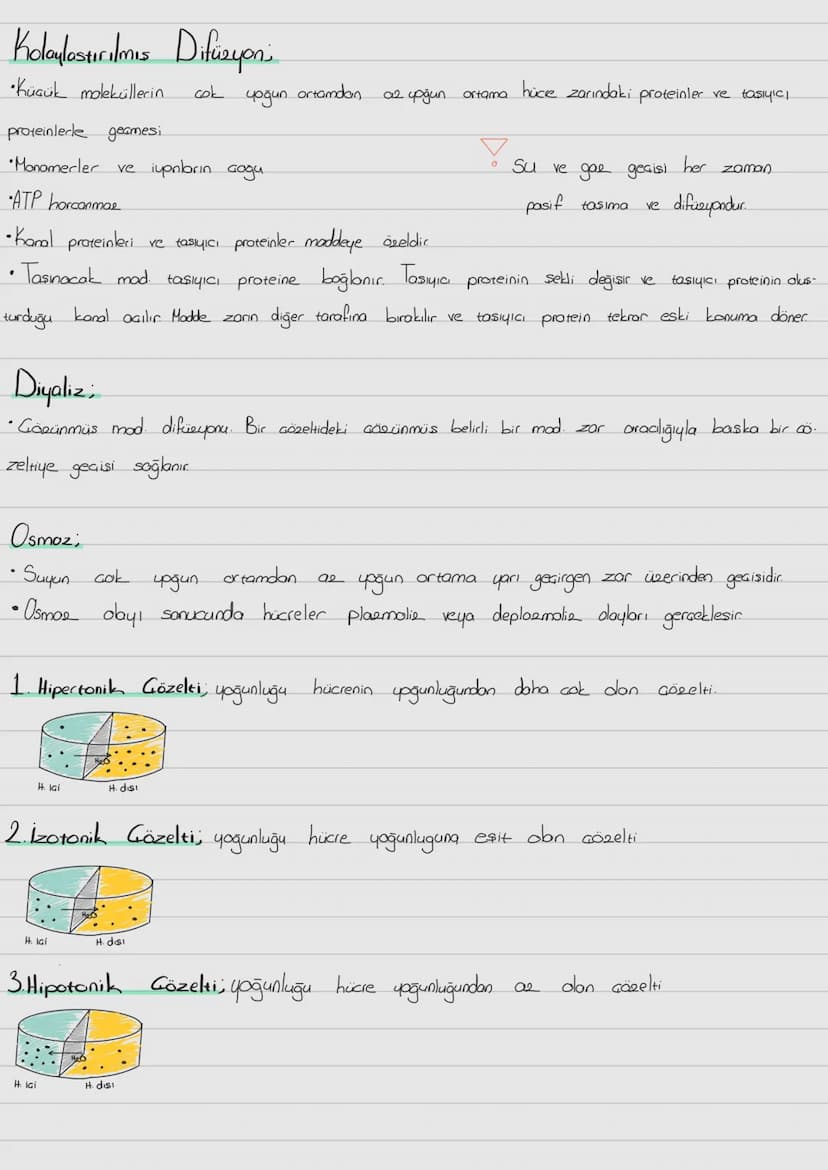 Kolaylastırılmıs Difüzyon;
•Kücük moleküllerin cok yoğun ortamdan az yoğun ortama hücre zarındaki proteinler ve tasıyıcı
proteinlerle gecmesi
•Monomerler ve iyonların cogu
Su ve gaz gecisi her zaman
•ATP harcanmaz
pasif tasıma ve difüzyondur.
•Kanal proteinleri ve tasıyıcı proteinler maddeye özeldir.
• Tasınacak mad. tasıyıcı proteine bağlanır. Tasıyıcı proteinin sekli değisir ve tasıyıcı proteinin olus-
turduğu kanal acılır. Madde zarın diğer tarafına bırakılır ve tasıyıcı protein tekrar eski konuma döner.
Diyaliz;
•Cözünmüs mad. difüzyonu. Bir cözeltideki cözünmüs belirli bir mad. zar aracılığıyla baska bir cö-
zeltiye gecisi sağlanır.
Osmoz;
•Suyun cok yoğun ortamdan az yoğun ortama yarı gecirgen zar üzerinden gecisidir.
•Osmoz olayı sonucunda hücreler plazmoliz veya deplazmoliz olayları gerceklesir.
1. Hipertonik Cözelti; yoğunluğu hücrenin yoğunluğundan daha cok olan cözelti.
H₂O
H. ici H. dısı
2.İzotonik Cözelti; yoğunluğu hücre yoğunluguna esit olan cözelti
H₂O
H. ici H. dısı
3.Hipotonik Cözelti; yoğunluğu hücre yoğunluğundan az olan cözelti
H₂O
H. ici H. dısı